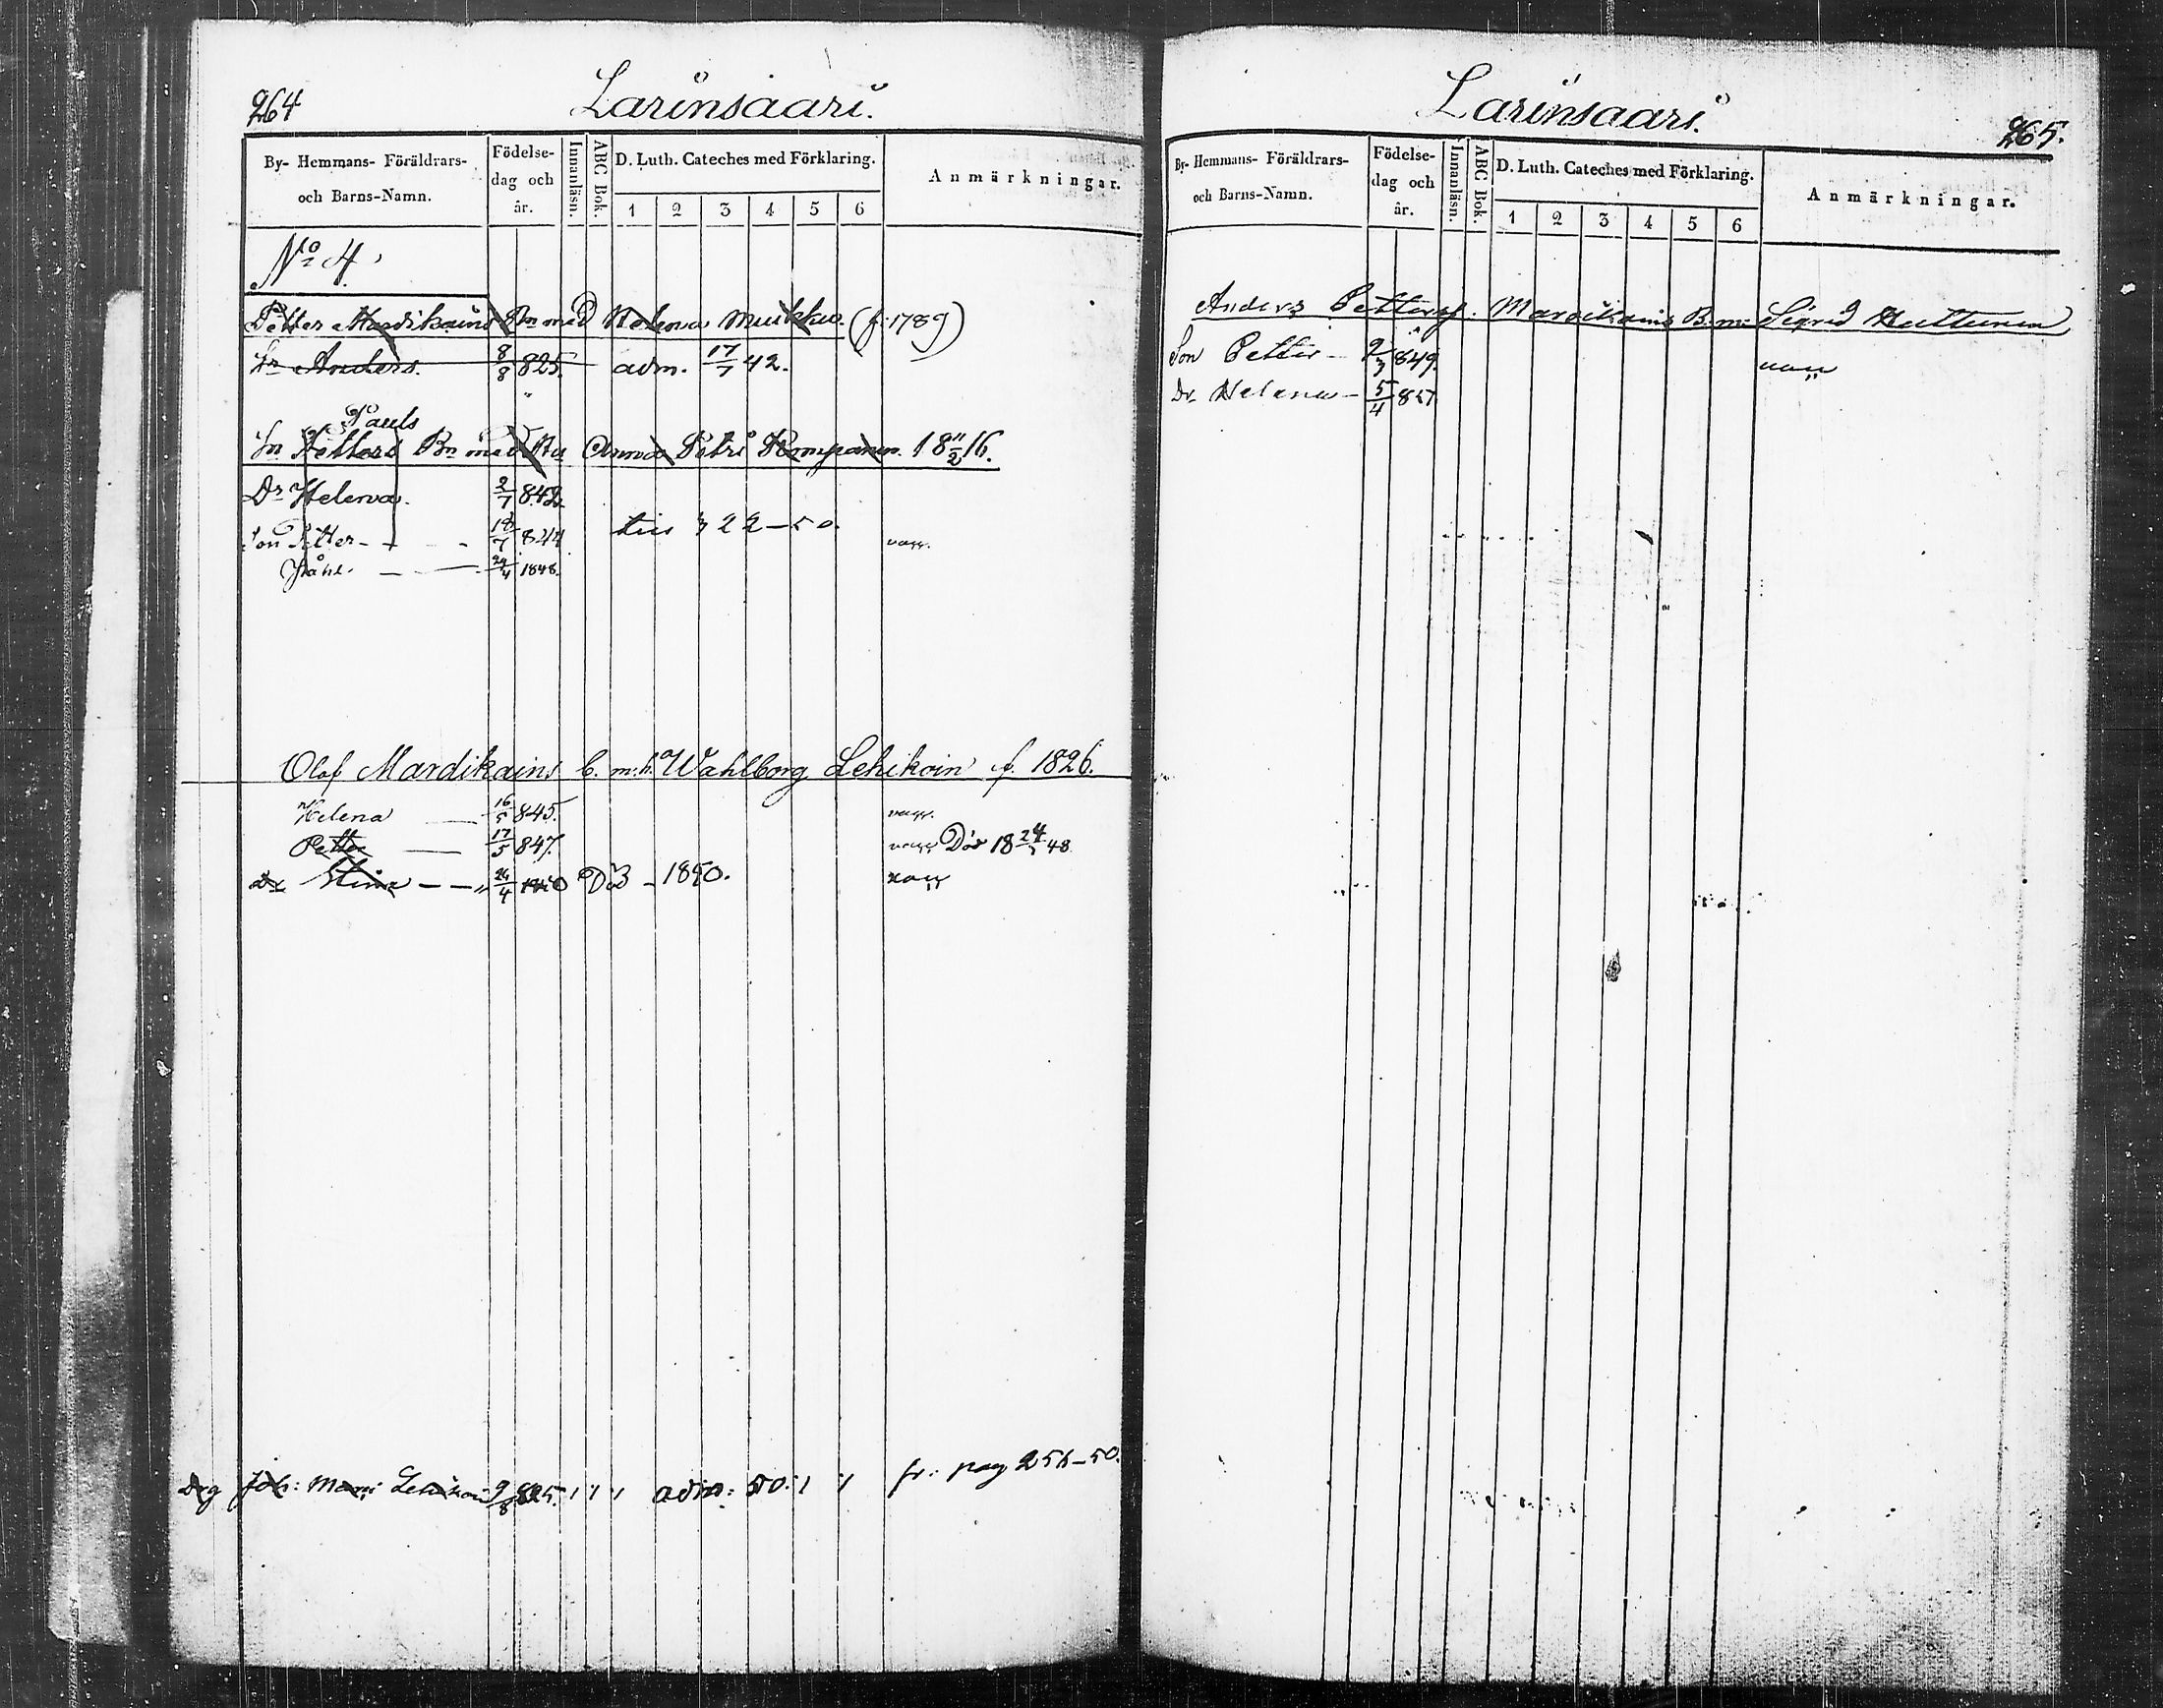 264
Larinsaari.
By- Hemmans- Föräldrars- och Barns-Namn.
Födelse- dag och år.
Innanläsn.
ABC Bok.
D. Luth. Cateches med Förklaring.
1 2 3 4 5 6
Anmärkningar.
No 4.
Petter Mardikains Bn med Helena Muikku (f. 1789)
Sn Anders. 8/8 825. adm. 17/7 42.
Pauls
Sn Petters Bn med Anna Petri Romp 18 11/2 16.
Dr Helena. 2/7 842.
Son Petter - - - 18/7 844 22-50. vacc.
Påhl. - - 29/4 1848.
Olof Mardikains b. m. h. Wahlborg Lehikoin f. 1826.
Helena - 16/5 845. vacc.
Petter - 17/5 847. vacc Död 18 24/ 48
Dr Stina - - 24/4 1850 Död - 1850. vacc
Joh: Lehikoin 9/8 835. adm: 50. fr. pag 256-50.
Larinsaari.
265.
By- Hemmans- Föräldrars- och Barns-Namn.
Födelse- dag och år.
Innanläsn.
ABC Bok.
D. Luth. Cateches med Förklaring.
1 2 3 4 5 6
Anmärkningar.
Anders Petters. Mardikains B. m. Sigrid Huttunen
Son Petter - 9/3 849. vacc
Dr. Helena - 5/4 851